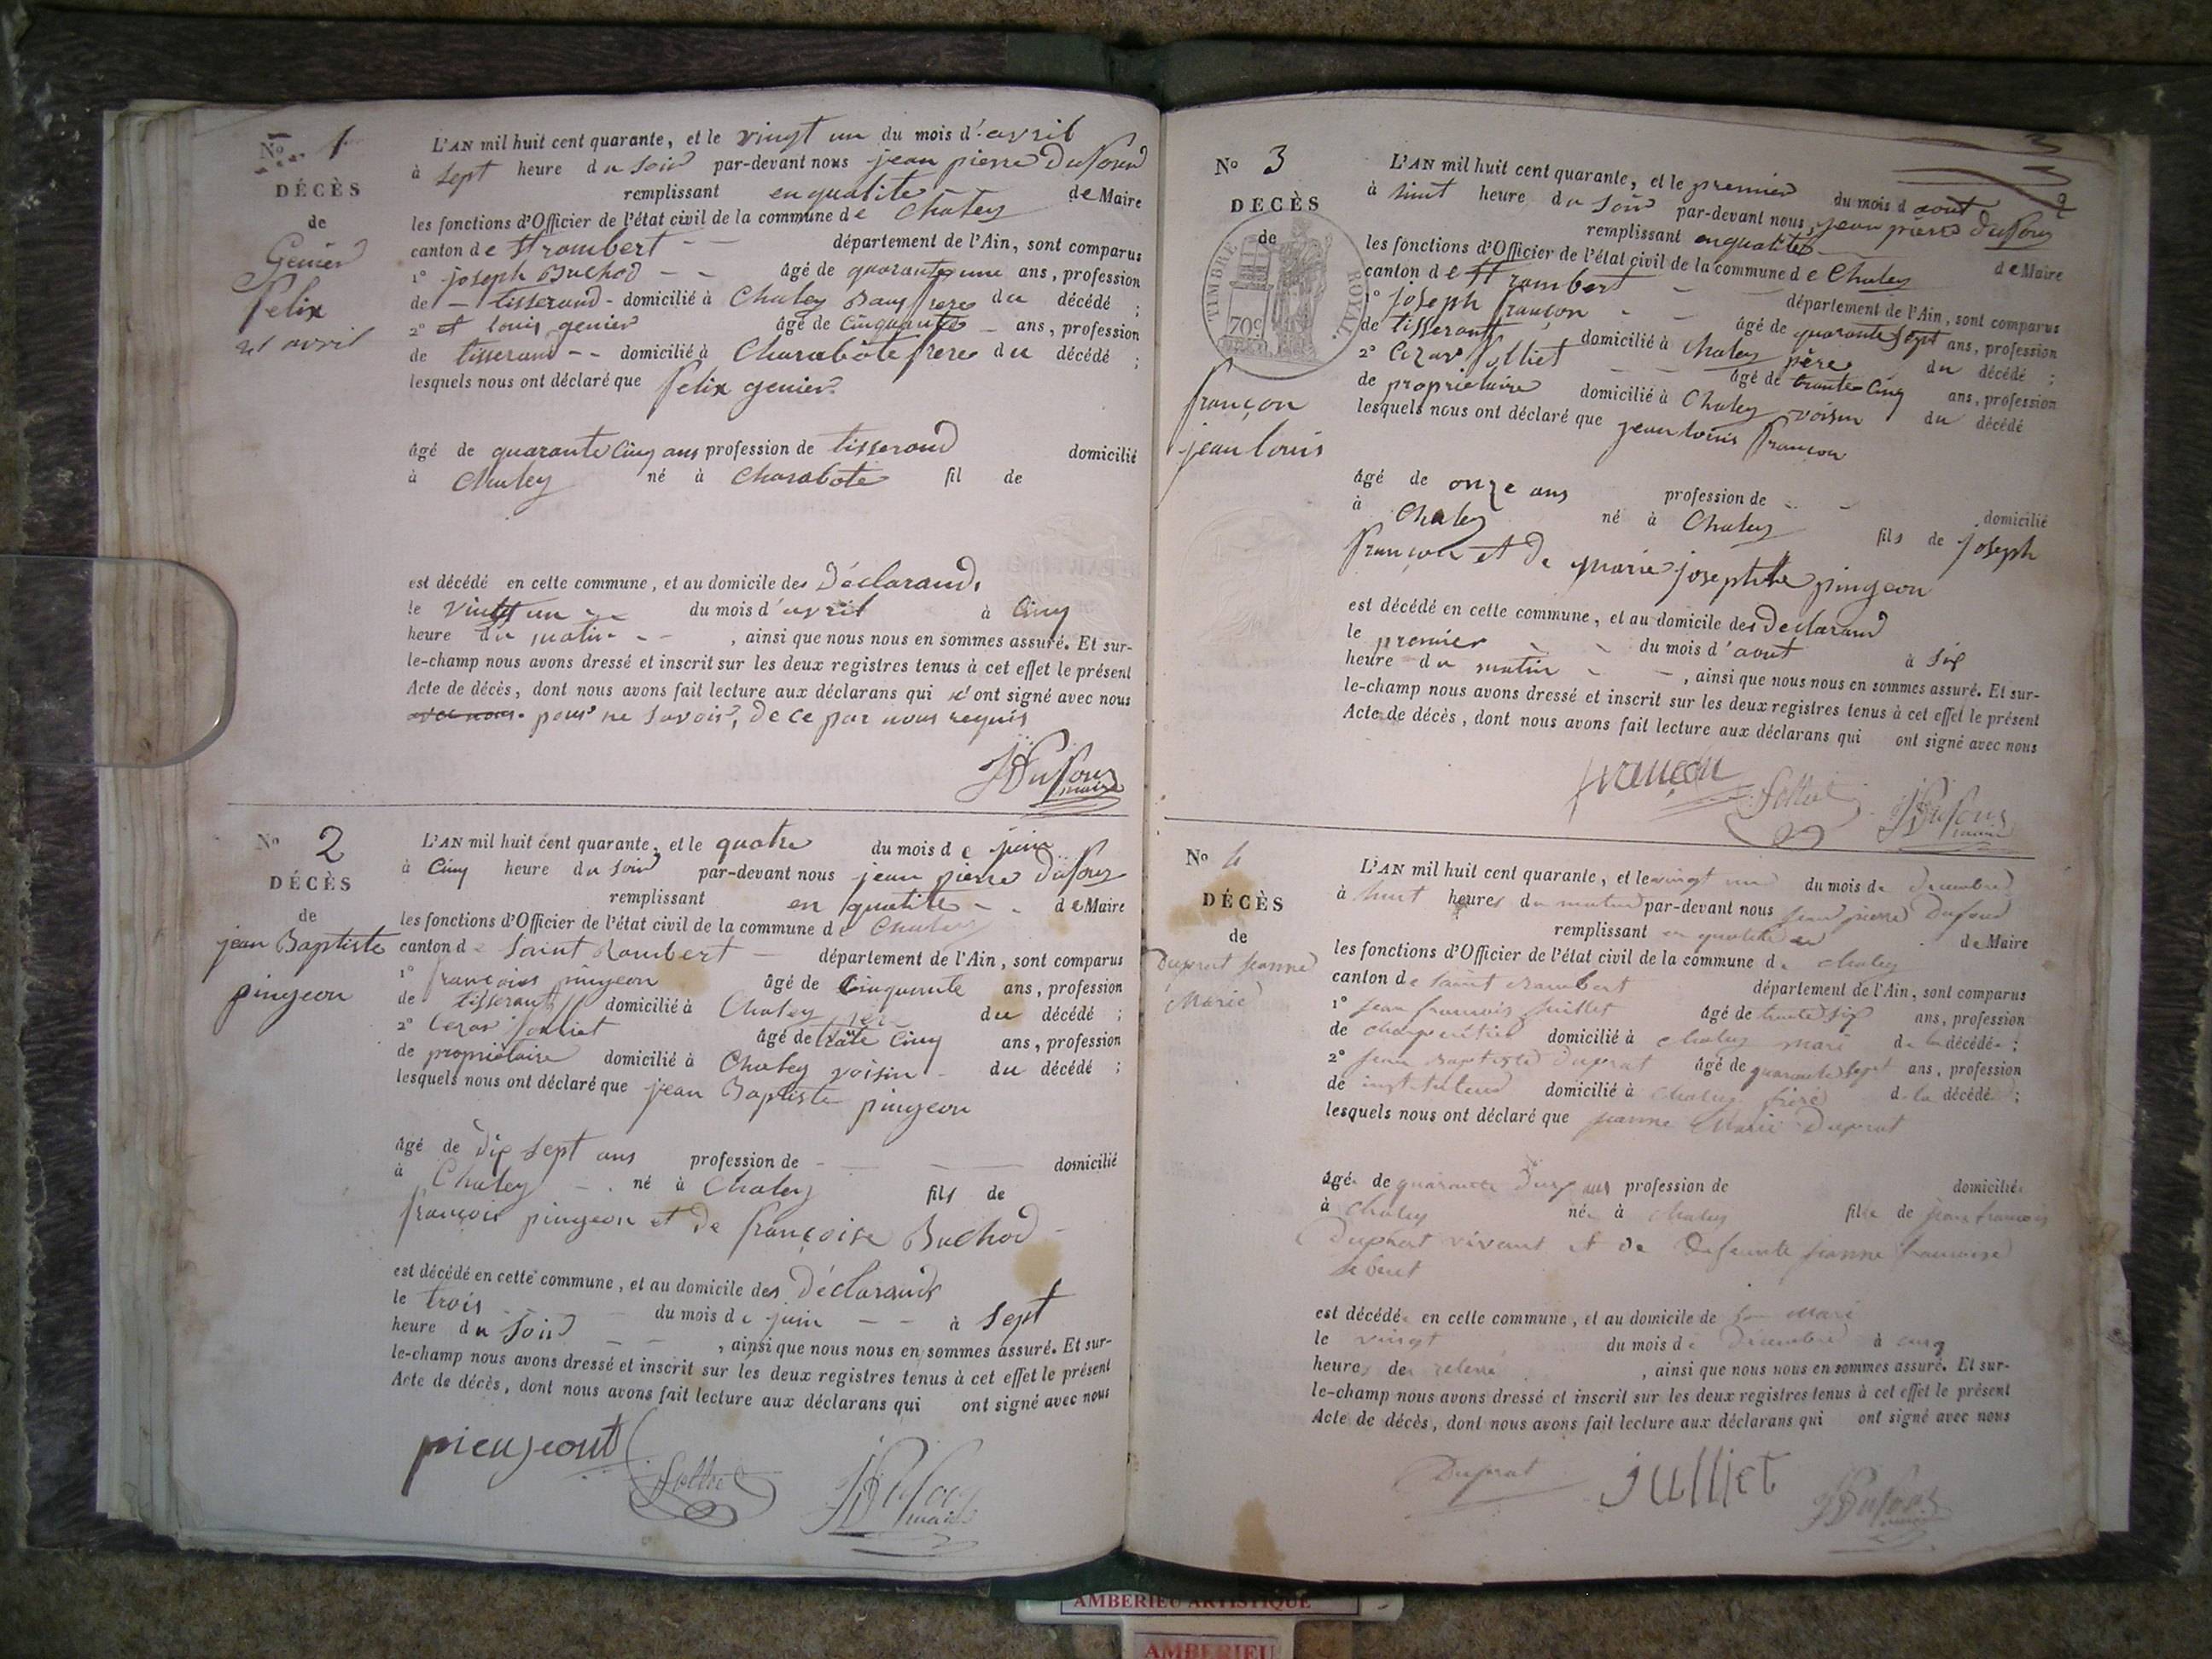 No 1
DÉCÈS
de
Genier
Felix
21 avril
L'AN mil huit cent quarante, et le vingt un du mois d'avril
à sept heure du soir par-devant nous jean pierre Dufour
remplissant en qualité de Maire
les fonctions d'Officier de l'état civil de la commune de Chaley
canton de St rambert - - département de l'Ain, sont comparus
1° joseph Buchod - - âgé de quarante une ans, profession
de - tisserand - domicilié à Chaley Beau frere du décédé ;
2° et louis genier âgé de Cinquante - ans, profession
de tisserand - - domicilié à Charabôte frere du décédé ;
lesquels nous ont déclaré que felix genier
âgé de quarante Cinq ans profession de tisserand domicilié
à Chaley né à Charabote fil de
est décédé en cette commune, et au domicile des Déclarands
le vingt un - - du mois d'avril à Cinq
heure du matin - - , ainsi que nous nous en sommes assuré. Et sur-
le-champ nous avons dressé et inscrit sur les deux registres tenus à cet effet le présent
Acte de décès, dont nous avons fait lecture aux déclarans qui n'ont signé avec nous
avec nous. pour ne savoir, de ce par nous requis
JPDufour
maire
No 2
DÉCÈS
de
jean Baptiste
pingeon
L'AN mil huit cent quarante, et le quatre du mois de juin
à Cinq heure du soir par-devant nous jean pierre Dufour
remplissant en qualité - - de Maire
les fonctions d'Officier de l'état civil de la commune de Chaley
canton de Saint Rambert - département de l'Ain, sont comparus
1° françois pingeon âgé de Cinquante ans, profession
de tisserant domicilié à Chaley père du décédé ;
2° Cezar folliet âgé de trate Cinq ans, profession
de propriétaire domicilié à Chaley voisin - du décédé ;
lesquels nous ont déclaré que jean Baptiste pingeon
âgé de dix sept ans profession de - - - domicilié
à Chaley - . né à Chaley fils de
françois pingeon et de françoise Buchod -
est décédé en cette commune, et au domicile des Déclarands
le trois - du mois de juin - - à sept
heure du soir - - , ainsi que nous nous en sommes assuré. Et sur-
le-champ nous avons dressé et inscrit sur les deux registres tenus à cet effet le présent
Acte de décès, dont nous avons fait lecture aux déclarans qui ont signé avec nous
folliet JPDufour
maire
3
2
No 3
DÉCÈS
de
TIMBRE ROYAL.
70c
françon
jean louis
L'AN mil huit cent quarante, et le premier du mois d aout
à huit heure du soir par-devant nous, jean pierre Dufour
remplissant en qualité de Maire
les fonctions d'Officier de l'état civil de la commune de Chaley
canton de St rambert - - département de l'Ain, sont comparus
1° joseph françon - - âgé de quarante sept ans, profession
de tisserant domicilié à Chaley père du décédé ;
2° Cezar folliet - - âgé de trante Cinq ans, profession
de propriétaire domicilié à Chaley voisin du décédé
lesquels nous ont déclaré que jean louis françon
âgé de onze ans profession de - - domicilié
à Chaley né à Chaley fils de joseph
françon et de marie josephtte pingeon
est décédé en cette commune, et au domicile des Declarand
le premier - - du mois d'aout à six
heure du matin - - , ainsi que nous nous en sommes assuré. Et sur-
le-champ nous avons dressé et inscrit sur les deux registres tenus à cet effet le présent
Acte de décès, dont nous avons fait lecture aux déclarans qui ont signé avec nous
françon folliet JPDufour
maire
No 4
DÉCÈS
de
Duprat Jeanne
Marie
L'AN mil huit cent quarante, et le vingt un du mois de decembre
à huit heures du matin par-devant nous Jean pierre Dufour
remplissant en qualité de Maire
les fonctions d'Officier de l'état civil de la commune de chaley
canton de saint rambert département de l'Ain, sont comparus
1° jean francois juillet âgé de trente six ans, profession
de charpentier domicilié à chaley mari de la décédée ;
2° jean baptiste Duprat âgé de quarante sept ans, profession
de instituteur domicilié à chaley frère de la décédé ;
lesquels nous ont déclaré que jeanne Marie Duprat
âgée de quarante Deux ans profession de domiciliée
à chaley née à chaley fille de jean francois
Duprat vivant et de Defeunte jeanne francoise
est décédée en cette commune, et au domicile de son Mari
le vingt du mois de Decembre à cinq
heures de , ainsi que nous nous en sommes assuré. Et sur-
le-champ nous avons dressé et inscrit sur les deux registres tenus à cet effet le présent
Acte de décès, dont nous avons fait lecture aux déclarans qui ont signé avec nous
Duprat julliet JPDufour
maire
AMBERIEU ARTISTIQUE
AMBERIEU